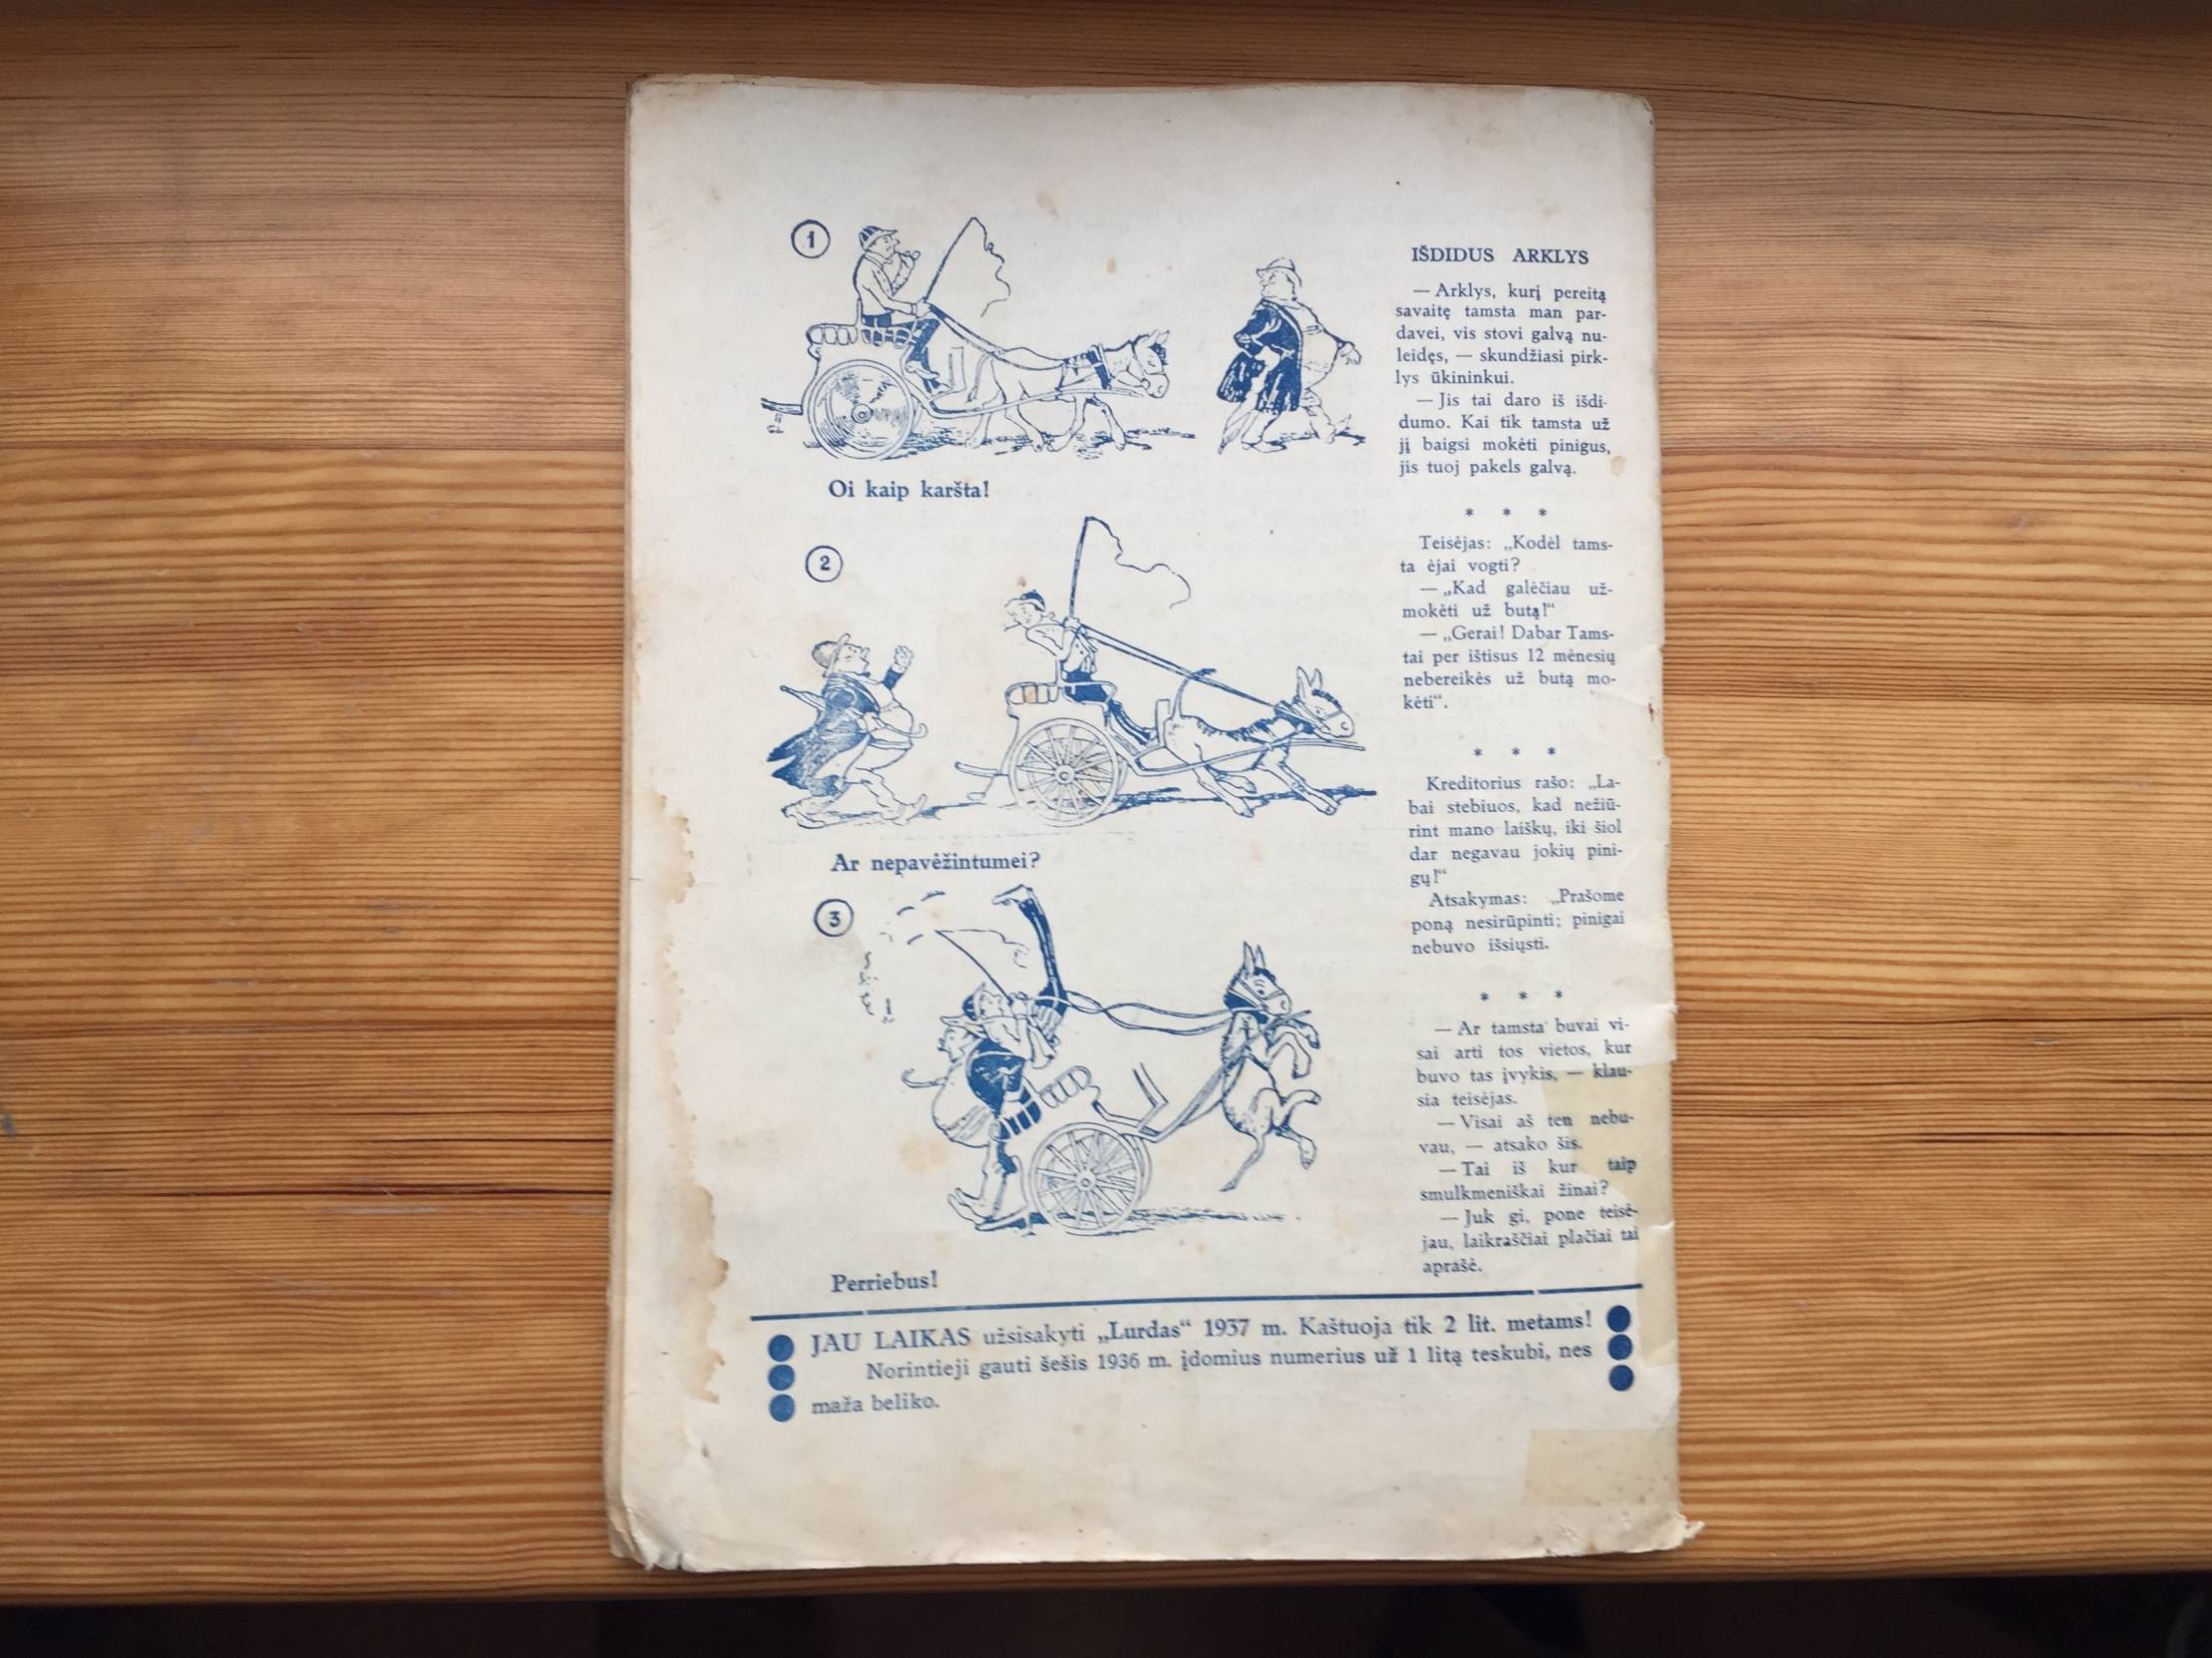 1
Oi kaip karšta!
2
Ar nepavėžintumei?
3
Perriebus!
IŠDIDUS ARKLYS
— Arklys, kurį pereitą
savaitę tamsta man par-
davei, vis stovi galvą nu-
leidęs, — skundžiasi pirk-
lys ūkininkui.
— Jis tai daro iš išdi-
dumo. Kai tik tamsta už
jį baigsi mokėti pinigus,
jis tuoj pakels galvą.
* * *
Teisėjas: „Kodėl tams-
ta ėjai vogti?
— „Kad galėčiau už-
mokėti už butą!“
— „Gerai! Dabar Tams-
tai per ištisus 12 mėnesių
nebereikės už butą mo-
kėti“.
* * *
Kreditorius rašo: „La-
bai stebiuos, kad nežiū-
rint mano laiškų, iki šiol
dar negavau jokių pini-
gų!“
Atsakymas: „Prašome
poną nesirūpinti; pinigai
nebuvo išsiųsti.
* * *
— Ar tamsta buvai vi-
sai arti tos vietos, kur
buvo tas įvykis, — klau-
sia teisėjas.
— Visai aš ten nebu-
vau, — atsako šis.
— Tai iš kur taip
smulkmeniškai žinai?
— Juk gi, pone teisė-
jau, laikraščiai plačiai tai
aprašė.
JAU LAIKAS užsisakyti „Lurdas“ 1937 m. Kaštuoja tik 2 lit. metams!
Norintieji gauti šešis 1936 m. įdomius numerius už 1 litą teskubi, nes
maža beliko.